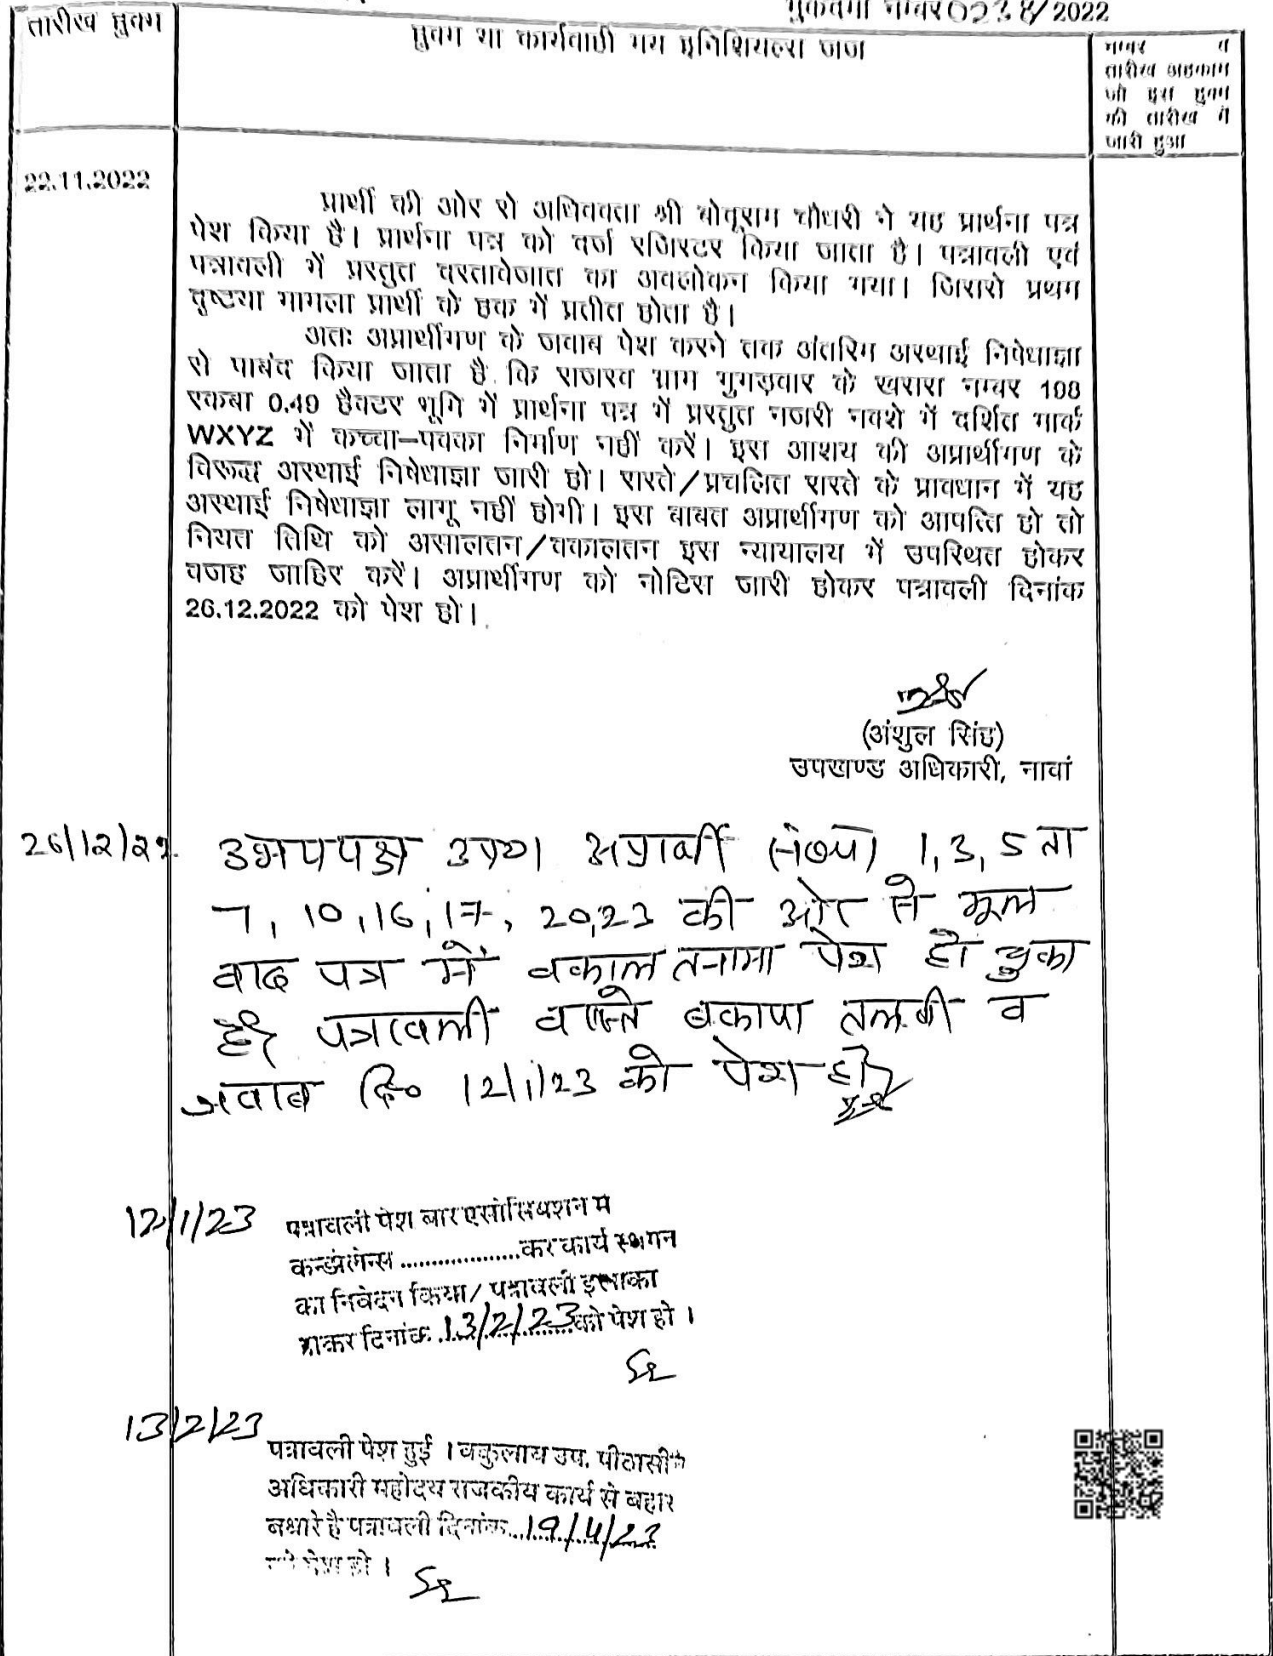 मुकदमा नम्बर 0238/2022
तारीख हुक्म
हुक्म या कार्यवाही मय इनिशियल्स जज
नम्बर व
तारीख अहकाम
जो इस हुक्म
की तारीख में
जारी हुआ
22.11.2022
प्रार्थी की ओर से अधिवक्ता श्री बोदूराम चौधरी ने यह प्रार्थना पत्र
पेश किया है। प्रार्थना पत्र को दर्ज रजिस्टर किया जाता है। पत्रावली एवं
पत्रावली में प्रस्तुत दस्तावेजात का अवलोकन किया गया। जिससे प्रथम
दृष्टया मामला प्रार्थी के हक में प्रतीत होता है।
अतः अप्रार्थीगण के जवाब पेश करने तक अंतरिम अस्थाई निषेधाज्ञा
से पाबंद किया जाता है कि राजस्व ग्राम गुगड़वार के खसरा नम्बर 198
रकबा 0.49 हैक्टर भूमि में प्रार्थना पत्र में प्रस्तुत नजरी नक्शे में दर्शित मार्क
WXYZ में कच्चा–पक्का निर्माण नहीं करें। इस आशय की अप्रार्थीगण के
विरूद्ध अस्थाई निषेधाज्ञा जारी हो। रास्ते/प्रचलित रास्ते के प्रावधान में यह
अस्थाई निषेधाज्ञा लागू नहीं होगी। इस बाबत अप्रार्थीगण को आपत्ति हो तो
नियत तिथि को असालतन/वकालतन इस न्यायालय में उपस्थित होकर
वजह जाहिर करें। अप्रार्थीगण को नोटिस जारी होकर पत्रावली दिनांक
26.12.2022 को पेश हो।
(अंशुल सिंह)
उपखण्ड अधिकारी, नावां
26/12/22
उभयपक्ष उप0। अप्रार्थी संख्या 1, 3, 5 ता
7, 10, 16, 17, 20, 23 की ओर से मूल
वाद पत्र में वकालतनामा पेश हो चुका
है। पत्रावली वास्ते बकाया तलबी व
जवाब दि० 12/1/23 को पेश हो।
12/1/23
पत्रावली पेश बार एसोसियेशन में
कन्डोलेन्स ................... कर कार्य स्थगन
का निवेदन किया/ पत्रावली इलाका
दिनांक 13/2/23 को पेश हो ।
13/2/23
पत्रावली पेश हुई । वकुलाय उप. पीठासीन
अधिकारी महोदय राजकीय कार्य से बहार
पधारे है पत्रावली दिनांक 19/4/23
को पेश हो ।